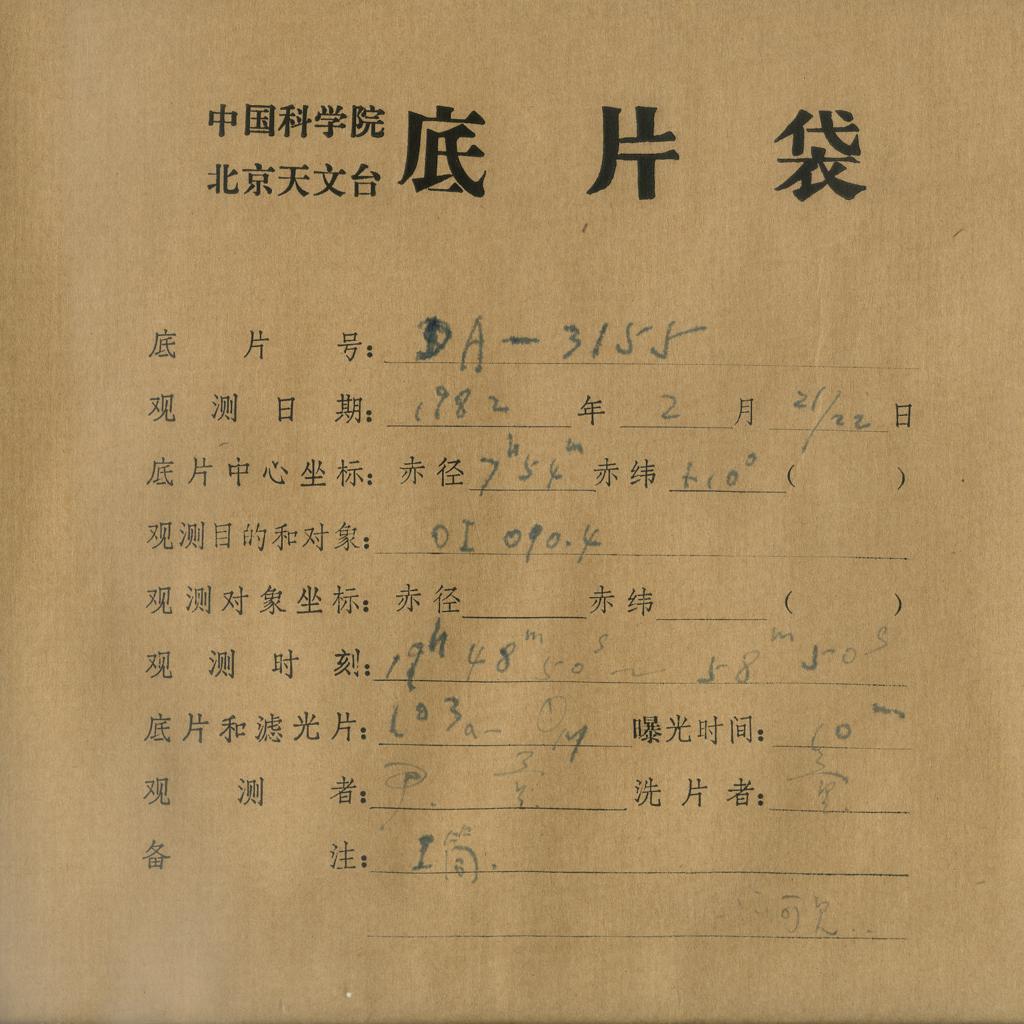 中国科学院
北京天文台
底片袋
底片号: DA-3155
观测日期: 1982年2月21/22日
底片中心坐标: 赤径7h54m赤纬+10°( )
观测目的和对象: OI 090.4
观测对象坐标: 赤径 赤纬 ( )
观测时刻: 19h 48m 50s ~ 58m 50s
底片和滤光片: 103a- 曝光时间: 10m
观测者: 洗片者:
备注: I筒.
可见..